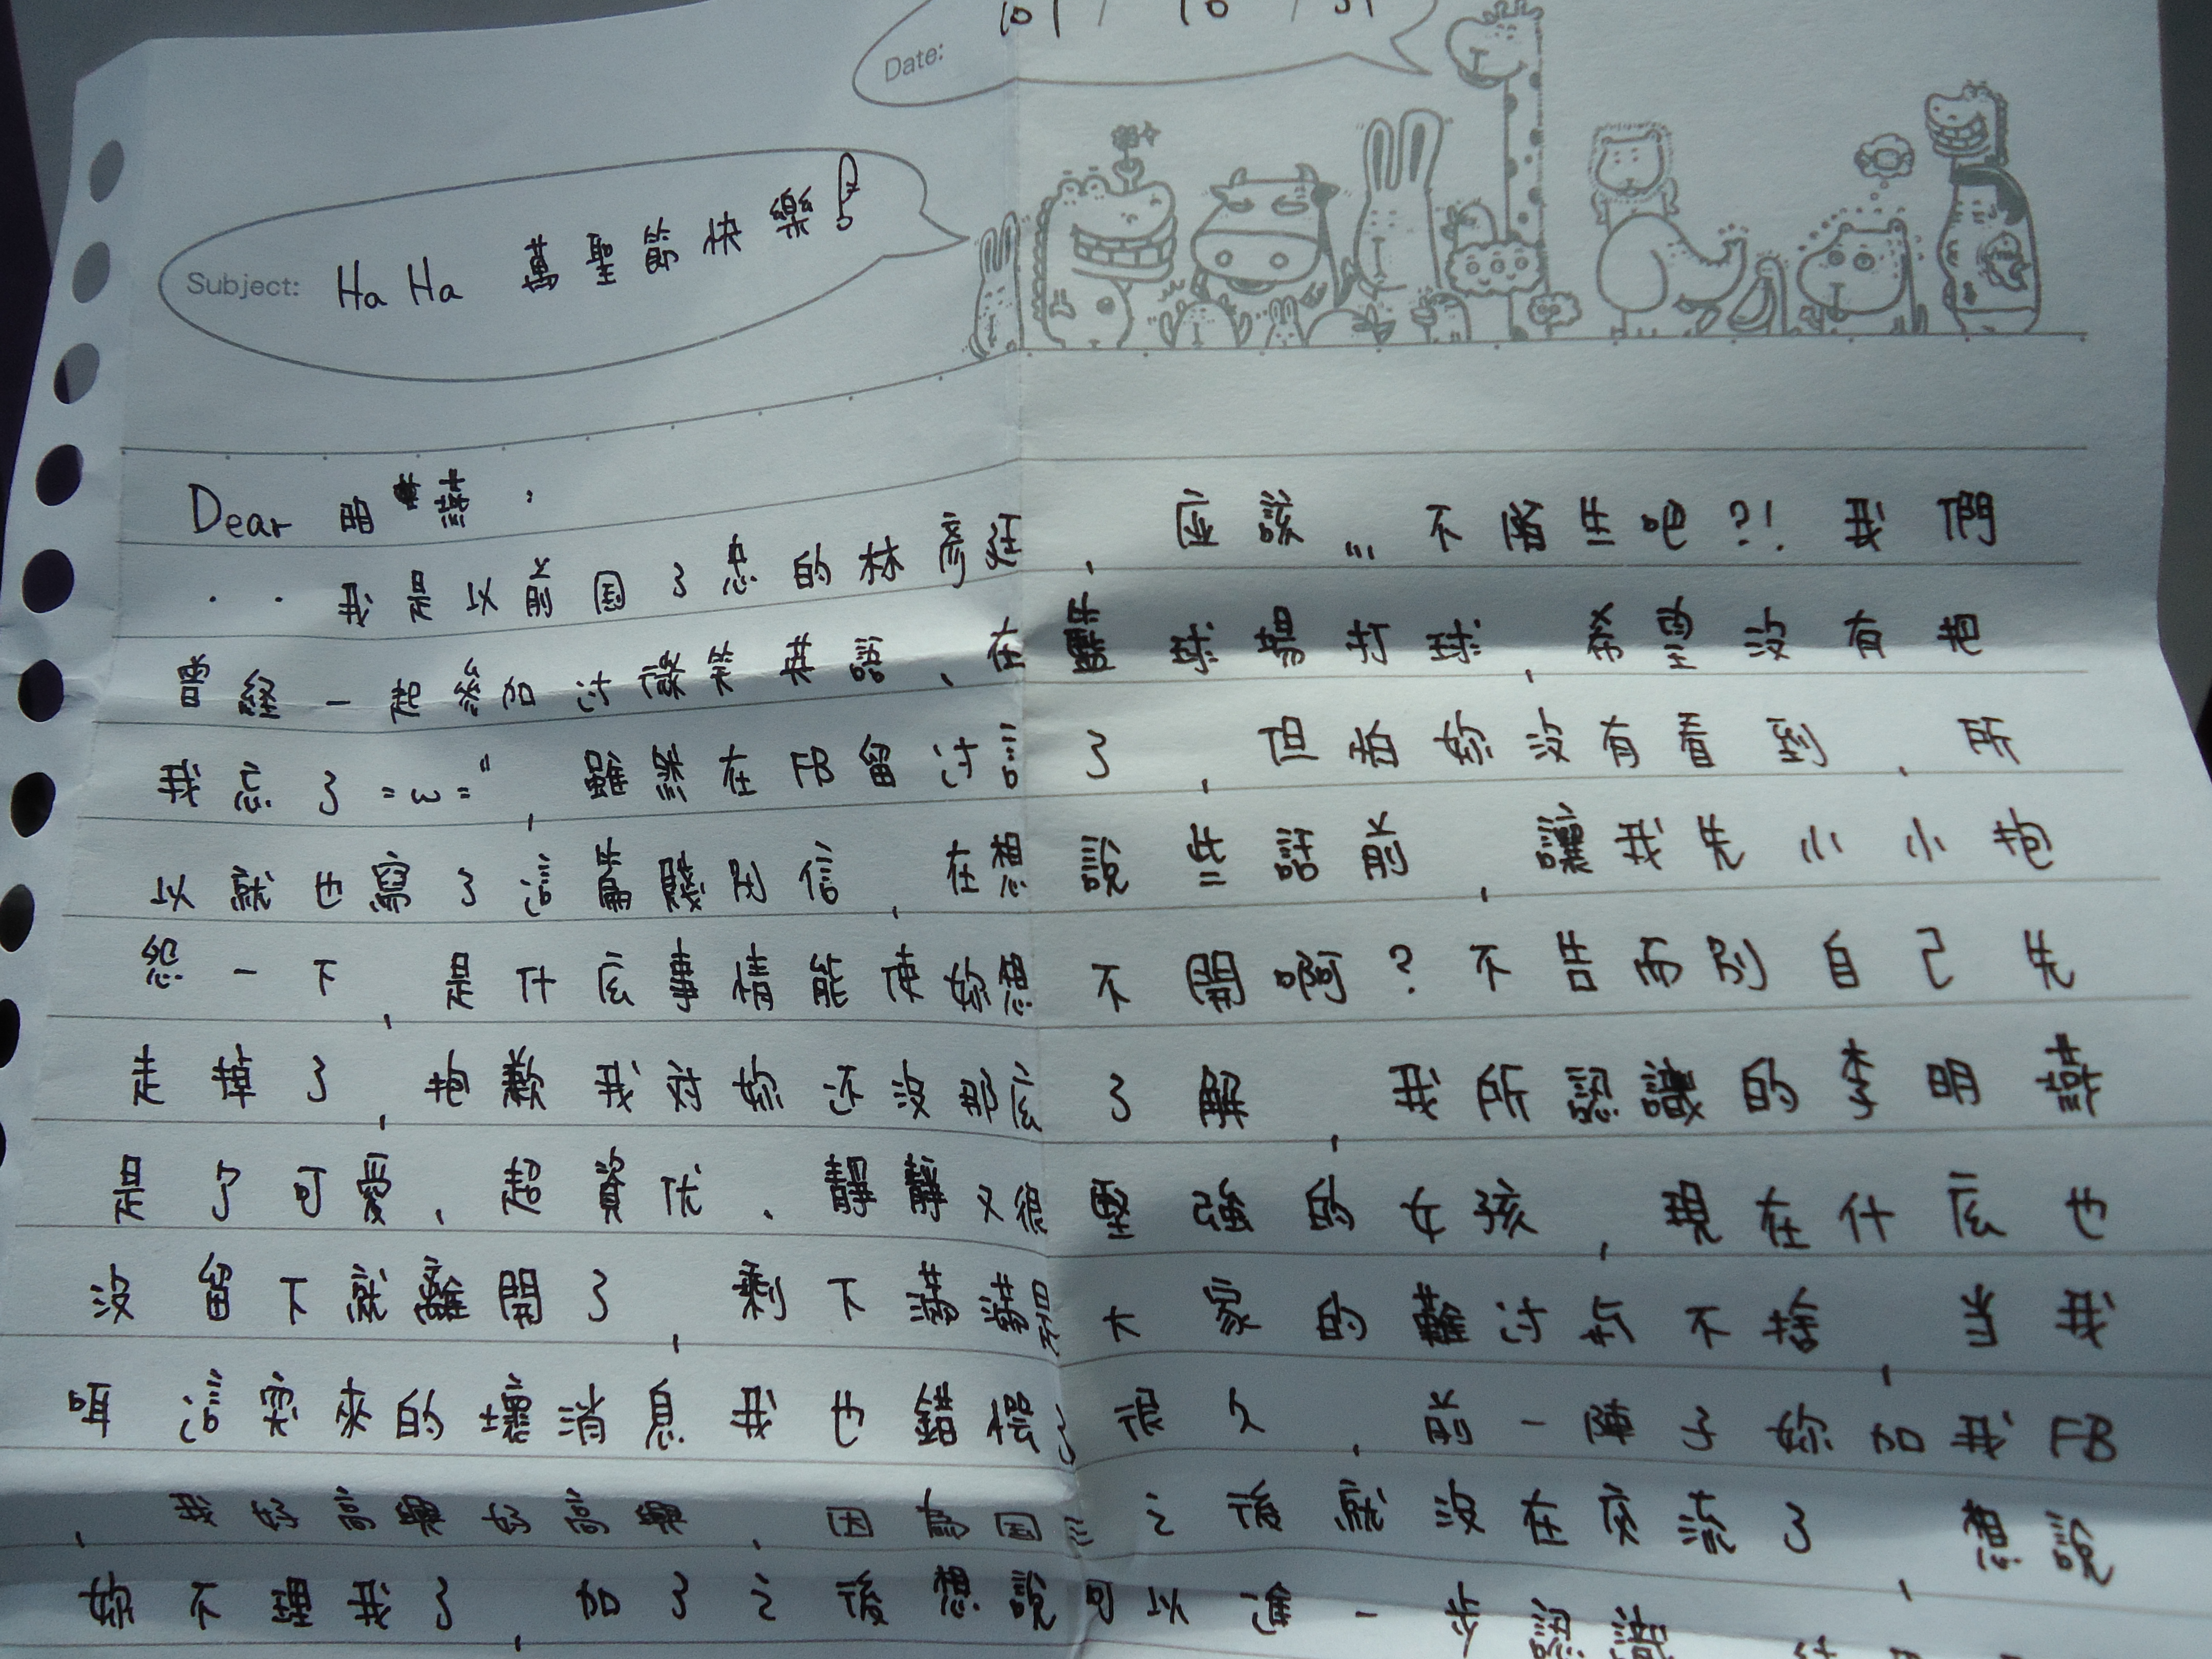 Date: 101 / 10 / 31
Subject: Ha Ha 萬聖節快樂!
Dear 明 ,
我是以前国了忠的林彥廷、應該...不陌生吧?!我們
曾經一起參加过微笑英語、在籃球場打球,希望沒有把
我忘了=ω=",雖然在FB留过言了,但怕妳沒有看到,所
以就也寫了這篇餞別信,在想說些話前,讓我先小小抱
怨一下,是什広事情能使妳想不開啊?不告而別自己先
走掉了,抱歉我对妳还沒那広了解,我所認識的李明
是个可愛、超資优、靜靜又很堅強的女孩,現在什広也
沒留下就離開了,剩下滿滿是大家的難过於不捨,当我
這突來的壞消息我也錯愕了很久,前一陣子妳加我FB
,我好高興好高興,因為国三之後就沒在交流了,想說
妳不理我了,加了之後想說可以進一步認識